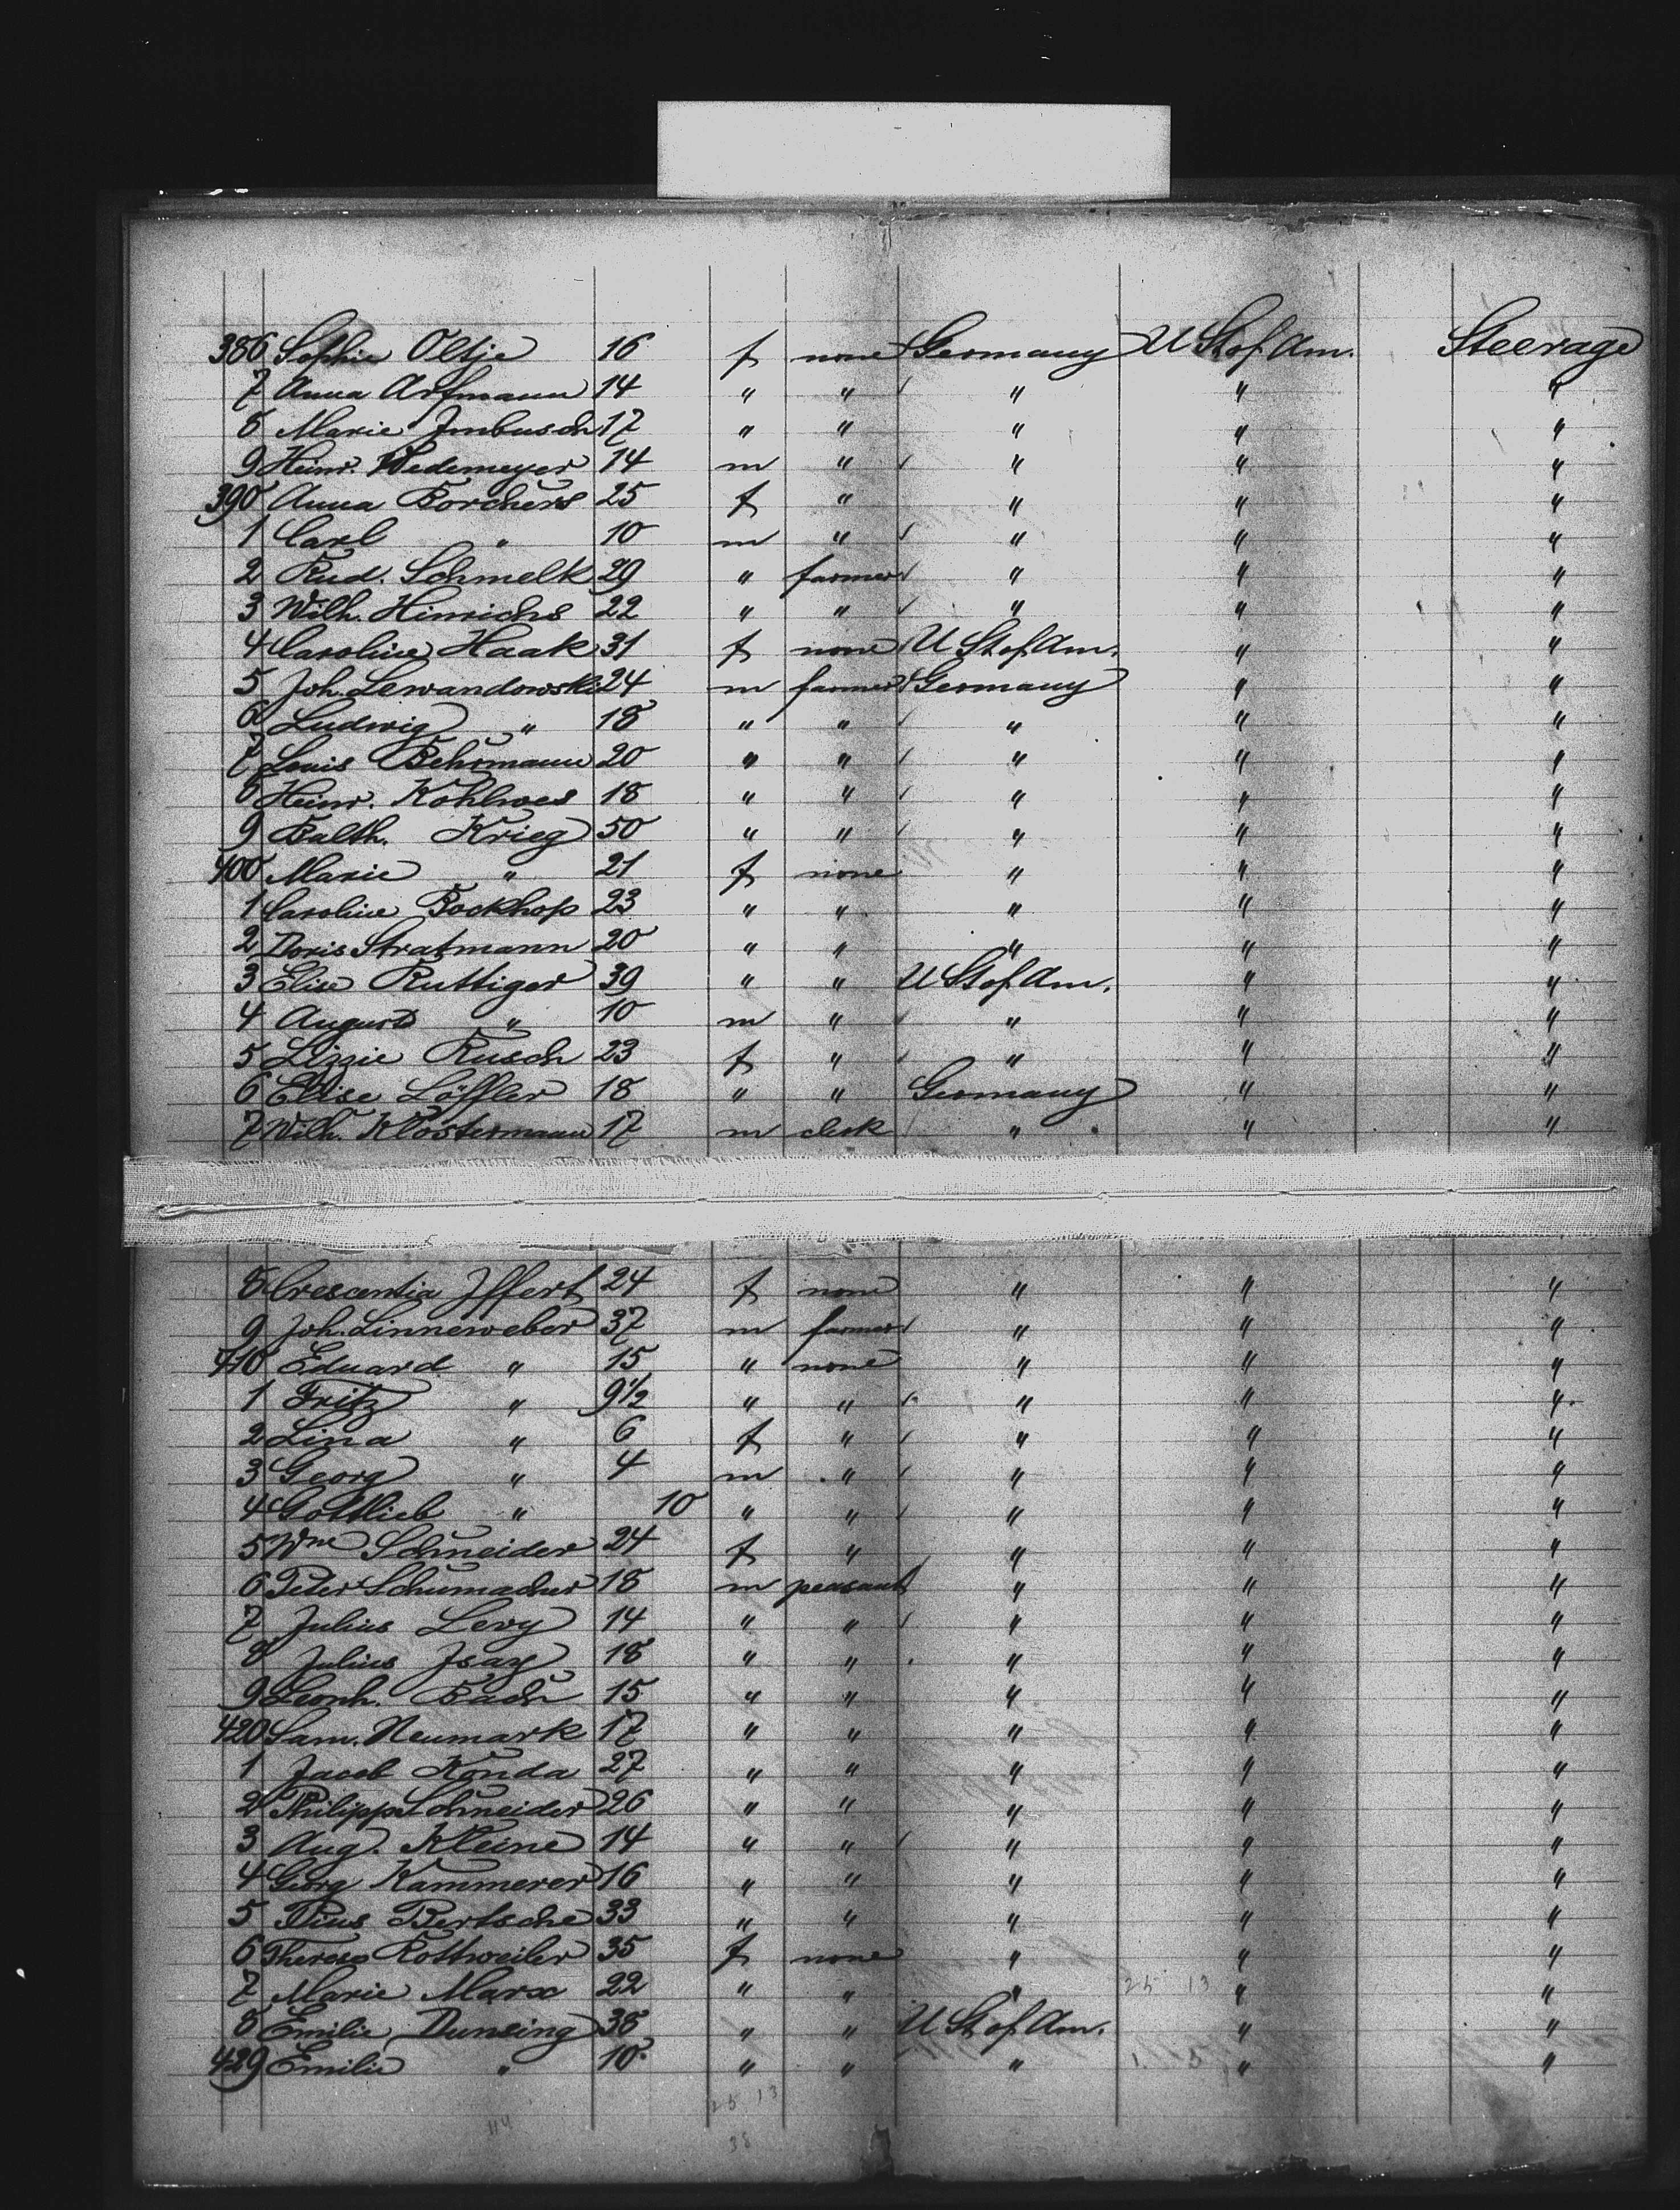 386 Sophie Oltje 16 f none Germany U St of Am. Steerage
7 Anna Arfmann 14 " " " " "
8 Marie Imbusch 17 " " " " "
9 Heinr. Wedemeyer 14 m " " " "
390 Anna Borchers 25 f " " " "
1 Carl " 10 m " " " "
2 Rud. Schmelk 29 " farmer " " "
3 Wilh. Hinrichs 22 " " " " "
4 Caroline Haak 31 f none U St of Am. " "
5 Joh. Lewandowski 24 m farmer Germany " "
6 Ludwig " 18 " " " " "
7 Louis Behrmann 20 " " " " "
8 Heinr. Kohlwes 18 " " " " "
9 Balth. Krieg 50 " " " " "
400 Marie " 21 f none " " "
1 Caroline Bockhop 23 " " " " "
2 Doris Stratmann 20 " " " " "
3 Elise Ruttiger 39 " " U St of Am. " "
4 August " 10 m " " " "
5 Lizzie Rusch 23 f " " " "
6 Elise Löffler 18 " " Germany " "
7 Wilh. Klostermann 17 m clerk " " "
8 Crescentia Iffert 24 f none " " "
9 Joh. Linneweber 37 m farmer " " "
410 Eduard " 15 " none " " "
1 Fritz " 9 1/2 " " " " "
2 Lina " 6 f " " " "
3 Georg " 4 m " " " "
4 Gottlieb " 10 " " " " "
5 Wme Schneider 24 f " " " "
6 Peter Schumacher 18 m peasant " " "
7 Julius Levy 14 " " " " "
8 Julius Isay 18 " " " " "
9 Leonh. Bach 15 " " " " "
420 Sam. Neumark 17 " " " " "
1 Jacob Konda 27 " " " " "
2 Philipp Schneider 26 " " " " "
3 Aug. Kleine 14 " " " " "
4 Georg Kammerer 16 " " " " "
5 Pius Bertsche 33 " " " " "
6 Theresa Rottweiler 35 f none " " "
7 Marie Marx 22 " " " " "
8 Emilie Dunsing 38 " " U St of Am. " "
429 Emilie " 10 " " " " "
25 13
38